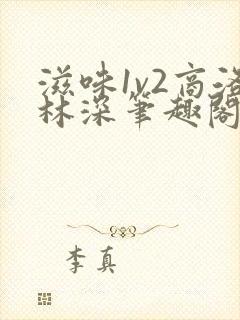 滋味1v2高洛
林深笔趣阁
李真